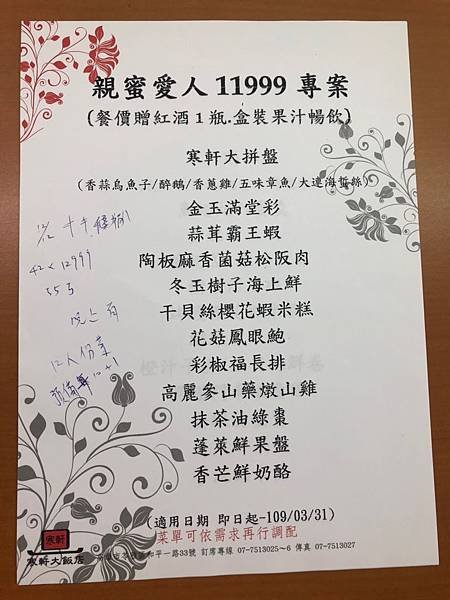 親蜜愛人 11999 專案
(餐價贈紅酒 1 瓶.盒裝果汁暢飲)
寒軒大拼盤
(香蒜烏魚子/醉鵝/香蔥雞/五味章魚/大連海蜇絲)
金玉滿堂彩
蒜茸霸王蝦
陶板麻香菌菇松阪肉
冬玉樹子海上鮮
干貝絲櫻花蝦米糕
花菇鳳眼鮑
彩椒福長排
高麗參山藥燉山雞
抹茶油綠棗
蓬萊鮮果盤
香芒鮮奶酪
42 x 12999
55
晚上
12人份菜
10+1
(適用日期 即日起-109/03/31)
菜單可依需求再行調配
和平一路33號 訂席專線 07-7513025~6 傳真 07-7513027
寒軒
寒軒大飯店